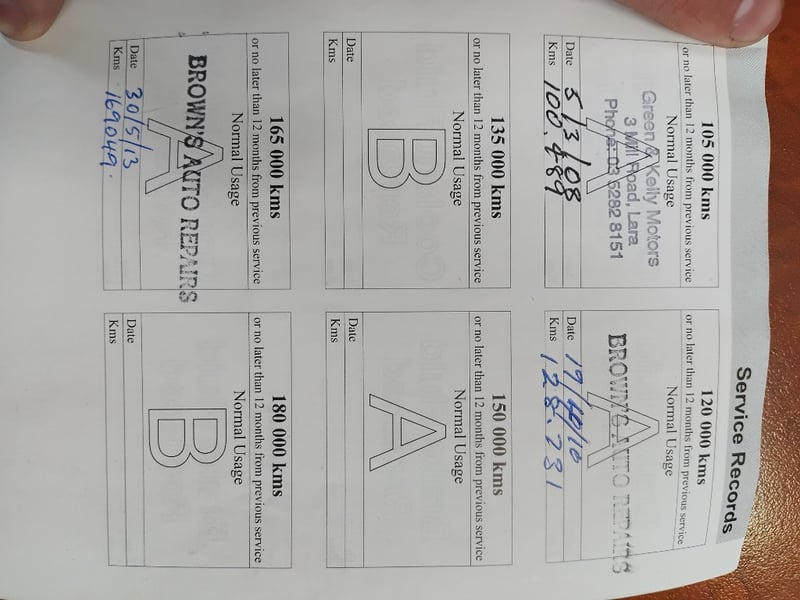 Service Records
105 000 kms
or no later than 12 months from previous service
Normal Usage
A
Green & Kelly Motors
3 Mill Road, Lara
Phone: 03 5282 8151
Date 5/3/08
Kms 100.489
120 000 kms
or no later than 12 months from previous service
Normal Usage
A
BROWN'S AUTO REPAIRS
Date 19/10/10
Kms
135 000 kms
or no later than 12 months from previous service
Normal Usage
B
Date
Kms
150 000 kms
or no later than 12 months from previous service
Normal Usage
A
Date
Kms
165 000 kms
or no later than 12 months from previous service
Normal Usage
A
BROWN'S AUTO REPAIRS
Date 30/5/13
Kms 169049.
180 000 kms
or no later than 12 months from previous service
Normal Usage
B
Date
Kms